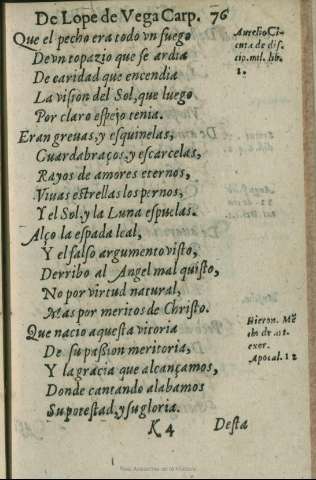 De Lope de Vega Carp. 76
Que el pecho era todo vn fuego
De vn topazio que se ardia
De caridad que encendia
La vision del Sol, que luego
Por claro espejo tenia.
Eran grevas, y esquinelas,
Guardabraços, y escarcelas,
Rayos de amores eternos,
Viuas estrellas los pernos,
Y el Sol, y la Luna espuelas.
Alço la espada leal,
Y el falso argumento visto,
Derribo al Angel mal quisto,
No por virtud natural,
Mas por meritos de Christo.
Que nacio aquesta vitoria
De su passion meritoria,
Y la gracia que alcançamos,
Donde cantando alabamos
Su potestad, y su gloria.
K 4 Desta
Aurelio Ci-
cuta de dis.
cip. mil. lib.
1.
Hieron. Mē
de art.
exer.
Apocal. 12
Real Academia de la Historia